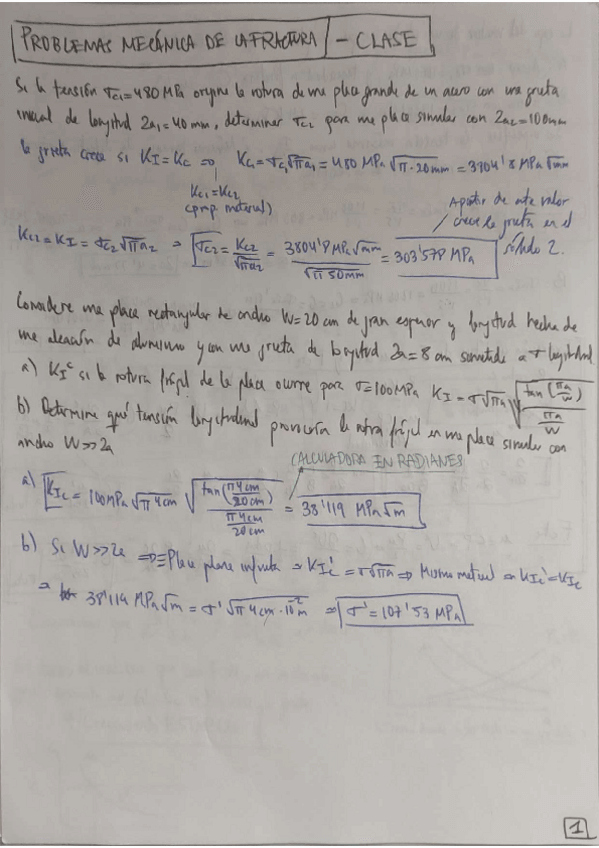 PROBLEMAS MECÁNICA DE LA FRACTURA - CLASE
Si la tensión σc1=480 MPa origina la rotura de una placa grande de un acero con una grieta
inicial de longitud 2a1=40mm, determinar σc2 para una placa similar con 2a2=100mm
la grieta crece si KI=Kc => Kc1=σc1√πa1=480 MPa √π·20mm=3804'8 MPa√mm
Kc1=Kc2
(prop. material)
A partir de este valor
crece la grieta en el
sólido 2.
Kc2=KI=σc2√πa2 => σc2=Kc2/√πa2=3804'8 MPa√mm/√π50mm=303'578 MPa
Considere una placa rectangular de ancho W=20 cm de gran espesor y longitud hecha de
una aleación de aluminio y con una grieta de longitud 2a=8 cm sometida a σ longitudinal
a) KIc si la rotura frágil de la placa ocurre para σ=100MPa KI=σ√πa √(tan(πa/W)/(πa/W))
b) Determine qué tensión longitudinal provocaría la rotura frágil en una placa similar con
ancho W>>2a
CALCULADORA EN RADIANES
a) KIc=100MPa√π4cm √(tan(π4cm/20cm)/(π4cm/20cm))=38'119 MPa√m
b) Si W>>2a => ≡ Placa plana infinita => KIc'=σ√πa => Mismo material => KIc'=KIc
=> 38'119 MPa√m=σ'√π4cm·10⁻²m => σ'=107'53 MPa
1